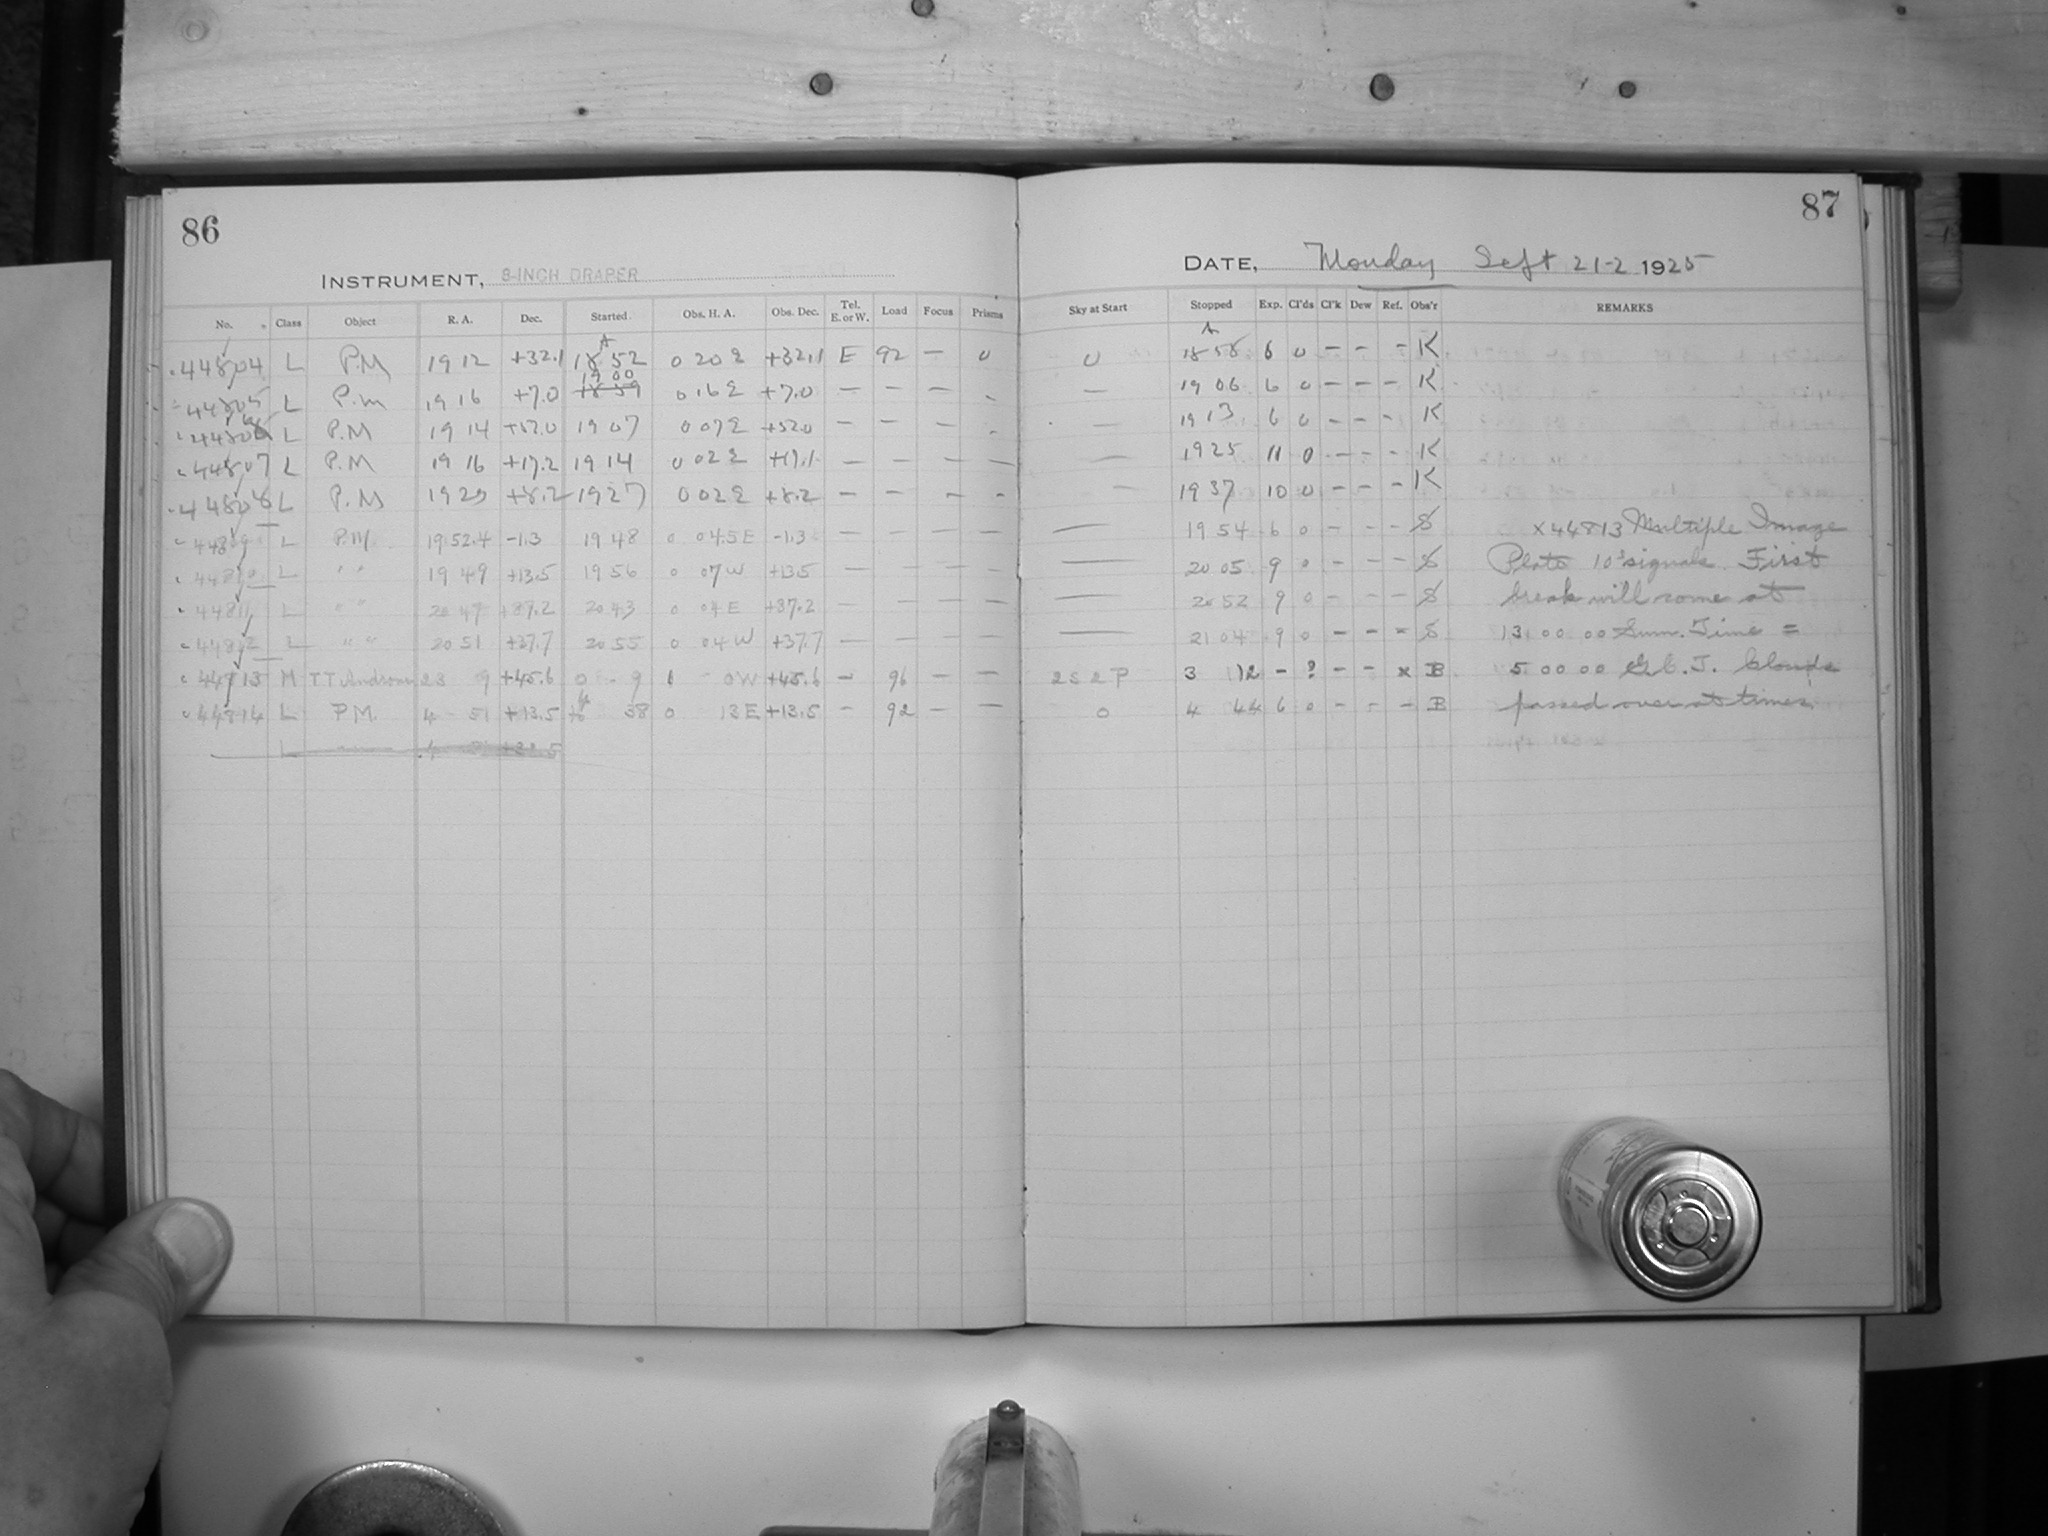 86
INSTRUMENT, 8-INCH DRAPER
No. Class Object R. A. Dec. Started Obs. H. A. Obs. Dec. Tel. E. or W. Load Focus Prisms
44804 L P.M 19 12 +32.1 A 18 52 0 20 E +32.1 E 92 — 0
44805 L P.M 19 16 +7.0 19 00 18 59 0 16 E +7.0 — — — -
44806 L P.M 19 14 +52.0 19 07 0 07 E +52.0 — — — -
44807 L P.M 19 16 +17.2 19 14 0 02 E +17.1 — — — —
44808 L P.M 19 29 +8.2 19 27 0 02 E +8.2 — — — -
44809 L P.M. 19 52.4 -1.3 19 48 0 04.5 E -1.3 — — — —
44810 L " " 19 49 +13.5 19 56 0 07 W +13.5 — — — —
44811 L " " 20 47 +37.2 20 43 0 04 E +37.2 — — — —
44812 L " " 20 51 +37.7 20 55 0 04 W +37.7 — — — —
44813 M TT Androm 23 9 +45.6 0 9 1 0 W +45.6 — 96 — —
44814 L P.M. 4 51 +13.5 4 38 0 13 E +13.5 — 92 — —
87
DATE, Monday Sept 21-2 1925
Sky at Start Stopped Exp. Cl'ds Cl'k Dew Ref. Obs'r REMARKS
0 A 18 58 6 0 — — - K
— 19 06 6 0 — — - K
— 19 13 6 0 — — - K
— 19 25 11 0 — — - K
— 19 37 10 0 — — - K
— 19 54 6 0 - - - S x 44813 Multiple Image
— 20 05 9 0 - - - S Plate 10s signals. First
— 20 52 9 0 - - - S break will come at
— 21 04 9 0 - - - S 13 00 00 Sum. Time =
2 S 2 P 3 12 - ? - - x B 5 00 00 G.C.T. Clouds
0 4 44 6 0 - - - B passed over at times.